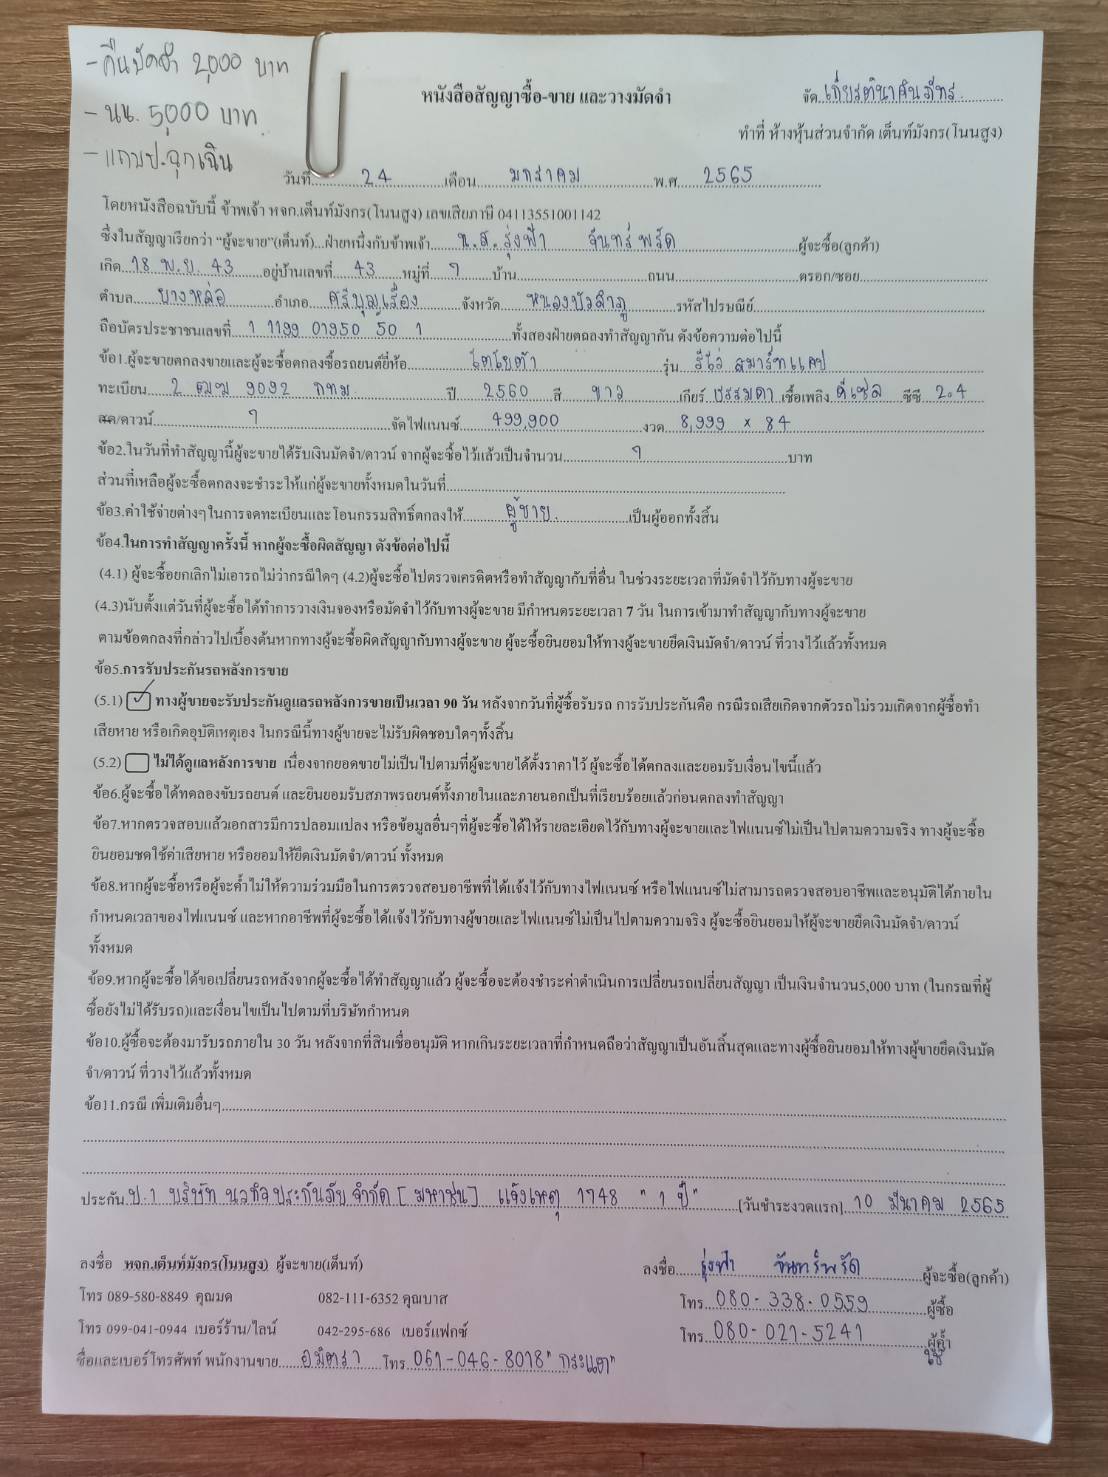 - คืนมัดจำ 2,000 บาท
- นน. 5,000 บาท
- แถมป.ฉุกเฉิน
หนังสือสัญญาซื้อ-ขาย และวางมัดจำ
จัด เกียรตินาคินภัทร
ทำที่ ห้างหุ้นส่วนจำกัด เต็นท์มังกร(โนนสูง)
วันที่ 24 เดือน มกราคม พ.ศ. 2565
โดยหนังสือฉบับนี้ ข้าพเจ้า หจก.เต็นท์มังกร(โนนสูง) เลขเสียภาษี 04113551001142
ซึ่งในสัญญาเรียกว่า "ผู้จะขาย"(เต็นท์)...ฝ่ายหนึ่งกับข้าพเจ้า น.ส. รุ่งฟ้า จันทร์พรัด ผู้จะซื้อ(ลูกค้า)
เกิด 18 พ.ย. 43 อยู่บ้านเลขที่ 43 หมู่ที่ 7 บ้าน ถนน ตรอก/ซอย
ตำบล ยางหล่อ อำเภอ ศรีบุญเรือง จังหวัด หนองบัวลำภู รหัสไปรษณีย์
ถือบัตรประชาชนเลขที่ 1 1199 01950 50 1 ทั้งสองฝ่ายตกลงทำสัญญากัน ดังข้อความต่อไปนี้
ข้อ1.ผู้จะขายตกลงขายและผู้จะซื้อตกลงซื้อรถยนต์ยี่ห้อ โตโยต้า รุ่น รีโว่ สมาร์ทแคป
ทะเบียน 2 ฒฒ 9092 กทม. ปี 2560 สี ขาว เกียร์ ธรรมดา เชื้อเพลิง ดีเซล ซีซี 2.4
สด/ดาวน์ ? จัดไฟแนนซ์ 499,900 งวด 8,999 x 84
ข้อ2.ในวันที่ทำสัญญานี้ผู้จะขายได้รับเงินมัดจำ/ดาวน์ จากผู้จะซื้อไว้แล้วเป็นจำนวน ? บาท
ส่วนที่เหลือผู้จะซื้อตกลงจะชำระให้แก่ผู้จะขายทั้งหมดในวันที่
ข้อ3.ค่าใช้จ่ายต่างๆในการจดทะเบียนและโอนกรรมสิทธิ์ตกลงให้ ผู้ขาย. เป็นผู้ออกทั้งสิ้น
ข้อ4.ในการทำสัญญาครั้งนี้ หากผู้จะซื้อผิดสัญญา ดังข้อต่อไปนี้
(4.1) ผู้จะซื้อยกเลิกไม่เอารถไม่ว่ากรณีใดๆ (4.2)ผู้จะซื้อไปตรวจเครดิตหรือทำสัญญากับที่อื่น ในช่วงระยะเวลาที่มัดจำไว้กับทางผู้จะขาย
(4.3)นับตั้งแต่วันที่ผู้จะซื้อได้ทำการวางเงินจองหรือมัดจำไว้กับทางผู้จะขาย มีกำหนดระยะเวลา 7 วัน ในการเข้ามาทำสัญญากับทางผู้จะขาย
ตามข้อตกลงที่กล่าวไปเบื้องต้นหากทางผู้จะซื้อผิดสัญญากับทางผู้จะขาย ผู้จะซื้อยินยอมให้ทางผู้จะขายยึดเงินมัดจำ/ดาวน์ ที่วางไว้แล้วทั้งหมด
ข้อ5.การรับประกันรถหลังการขาย
(5.1) ทางผู้ขายจะรับประกันดูแลรถหลังการขายเป็นเวลา 90 วัน หลังจากวันที่ผู้ซื้อรับรถ การรับประกันคือ กรณีรถเสียเกิดจากตัวรถไม่รวมเกิดจากผู้ซื้อทำ
เสียหาย หรือเกิดอุบัติเหตุเอง ในกรณีนี้ทางผู้ขายจะไม่รับผิดชอบใดๆทั้งสิ้น
(5.2) ไม่ได้ดูแลหลังการขาย เนื่องจากยอดขายไม่เป็นไปตามที่ผู้จะขายได้ตั้งราคาไว้ ผู้จะซื้อได้ตกลงและยอมรับเงื่อนไขนี้แล้ว
ข้อ6.ผู้จะซื้อได้ทดลองขับรถยนต์ และยินยอมรับสภาพรถยนต์ทั้งภายในและภายนอกเป็นที่เรียบร้อยแล้วก่อนตกลงทำสัญญา
ข้อ7.หากตรวจสอบแล้วเอกสารมีการปลอมแปลง หรือข้อมูลอื่นๆที่ผู้จะซื้อได้ให้รายละเอียดไว้กับทางผู้จะขายและไฟแนนซ์ไม่เป็นไปตามความจริง ทางผู้จะซื้อ
ยินยอมชดใช้ค่าเสียหาย หรือยอมให้ยึดเงินมัดจำ/ดาวน์ ทั้งหมด
ข้อ8.หากผู้จะซื้อหรือผู้จะค้ำไม่ให้ความร่วมมือในการตรวจสอบอาชีพที่ได้แจ้งไว้กับทางไฟแนนซ์ หรือไฟแนนซ์ไม่สามารถตรวจสอบอาชีพและอนุมัติได้ภายใน
กำหนดเวลาของไฟแนนซ์ และหากอาชีพที่ผู้จะซื้อได้แจ้งไว้กับทางผู้ขายและไฟแนนซ์ไม่เป็นไปตามความจริง ผู้จะซื้อยินยอมให้ผู้จะขายยึดเงินมัดจำ/ดาวน์
ทั้งหมด
ข้อ9.หากผู้จะซื้อได้ขอเปลี่ยนรถหลังจากผู้จะซื้อได้ทำสัญญาแล้ว ผู้จะซื้อจะต้องชำระค่าดำเนินการเปลี่ยนรถเปลี่ยนสัญญา เป็นเงินจำนวน5,000 บาท (ในกรณีที่ผู้
ซื้อยังไม่ได้รับรถ)และเงื่อนไขเป็นไปตามที่บริษัทกำหนด
ข้อ10.ผู้ซื้อจะต้องมารับรถภายใน 30 วัน หลังจากที่สินเชื่ออนุมัติ หากเกินระยะเวลาที่กำหนดถือว่าสัญญาเป็นอันสิ้นสุดและทางผู้ซื้อยินยอมให้ทางผู้ขายยึดเงินมัด
จำ/ดาวน์ ที่วางไว้แล้วทั้งหมด
ข้อ11.กรณี เพิ่มเติมอื่นๆ
ประกัน ป.1 บริษัท นวกิจประกันภัย จำกัด [มหาชน] แจ้งเหตุ 1748 "1 ปี" [วันชำระงวดแรก] 10 มีนาคม 2565
ลงชื่อ หจก.เต็นท์มังกร(โนนสูง) ผู้จะขาย(เต็นท์)
ลงชื่อ รุ่งฟ้า จันทร์พรัด ผู้จะซื้อ(ลูกค้า)
โทร 089-580-8849 คุณมด 082-111-6352 คุณบาส
โทร 080-338-0559 ผู้ซื้อ
โทร 099-041-0944 เบอร์ร้าน/ไลน์ 042-295-686 เบอร์แฟกซ์
โทร 080-021-5241 ผู้ค้ำ
ใช้
ชื่อและเบอร์โทรศัพท์ พนักงานขาย อมิตรา โทร 061-046-8018 "กระแต"